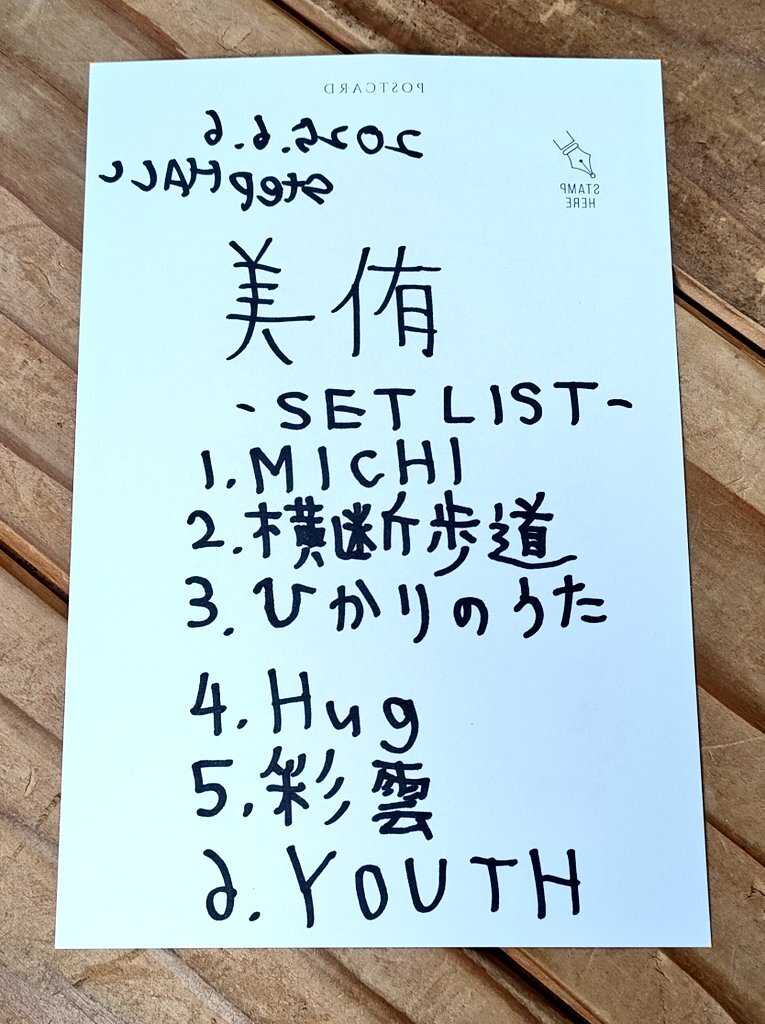 POSTCARD
2025.6.6
StepHALL
STAMP
HERE
美侑
-SET LIST-
1.MICHI
2.横断歩道
3.ひかりのうた
4.Hug
5.彩雲
6.YOUTH